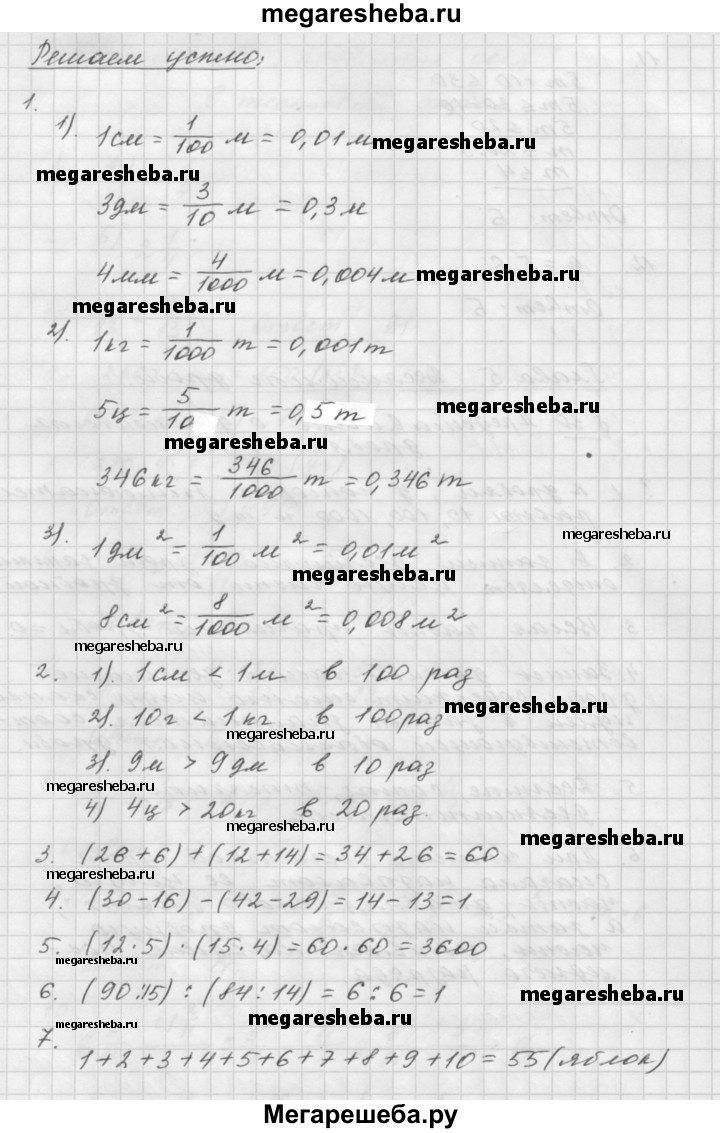 megaresheba.ru
Решаем устно:
1.
1). 1 см = 1/100 м = 0,01 м
megaresheba.ru
megaresheba.ru
3 дм = 3/10 м = 0,3 м
4 мм = 4/1000 м = 0,004 м
megaresheba.ru
megaresheba.ru
2). 1 кг = 1/1000 т = 0,001 т
5 ц = 5/10 т = 0,5 т
megaresheba.ru
megaresheba.ru
346 кг = 346/1000 т = 0,346 т
megaresheba.ru
3). 1 дм² = 1/100 м² = 0,01 м²
megaresheba.ru
8 см² = 8/1000 м² = 0,008 м²
megaresheba.ru
2. 1). 1 см < 1 м в 100 раз
megaresheba.ru
2). 10 г < 1 кг в 100 раз
megaresheba.ru
3). 9 м > 9 дм в 10 раз
megaresheba.ru
4) 4 ц > 20 кг в 20 раз.
megaresheba.ru
megaresheba.ru
3. (28 + 6) + (12 + 14) = 34 + 26 = 60
4. (30 - 16) - (42 - 29) = 14 - 13 = 1
5. (12 · 5) · (15 · 4) = 60 · 60 = 3600
megaresheba.ru
6. (90 : 15) : (84 : 14) = 6 : 6 = 1
megaresheba.ru
megaresheba.ru
7.
1 + 2 + 3 + 4 + 5 + 6 + 7 + 8 + 9 + 10 = 55 (яблок)
Мегарешеба.ру